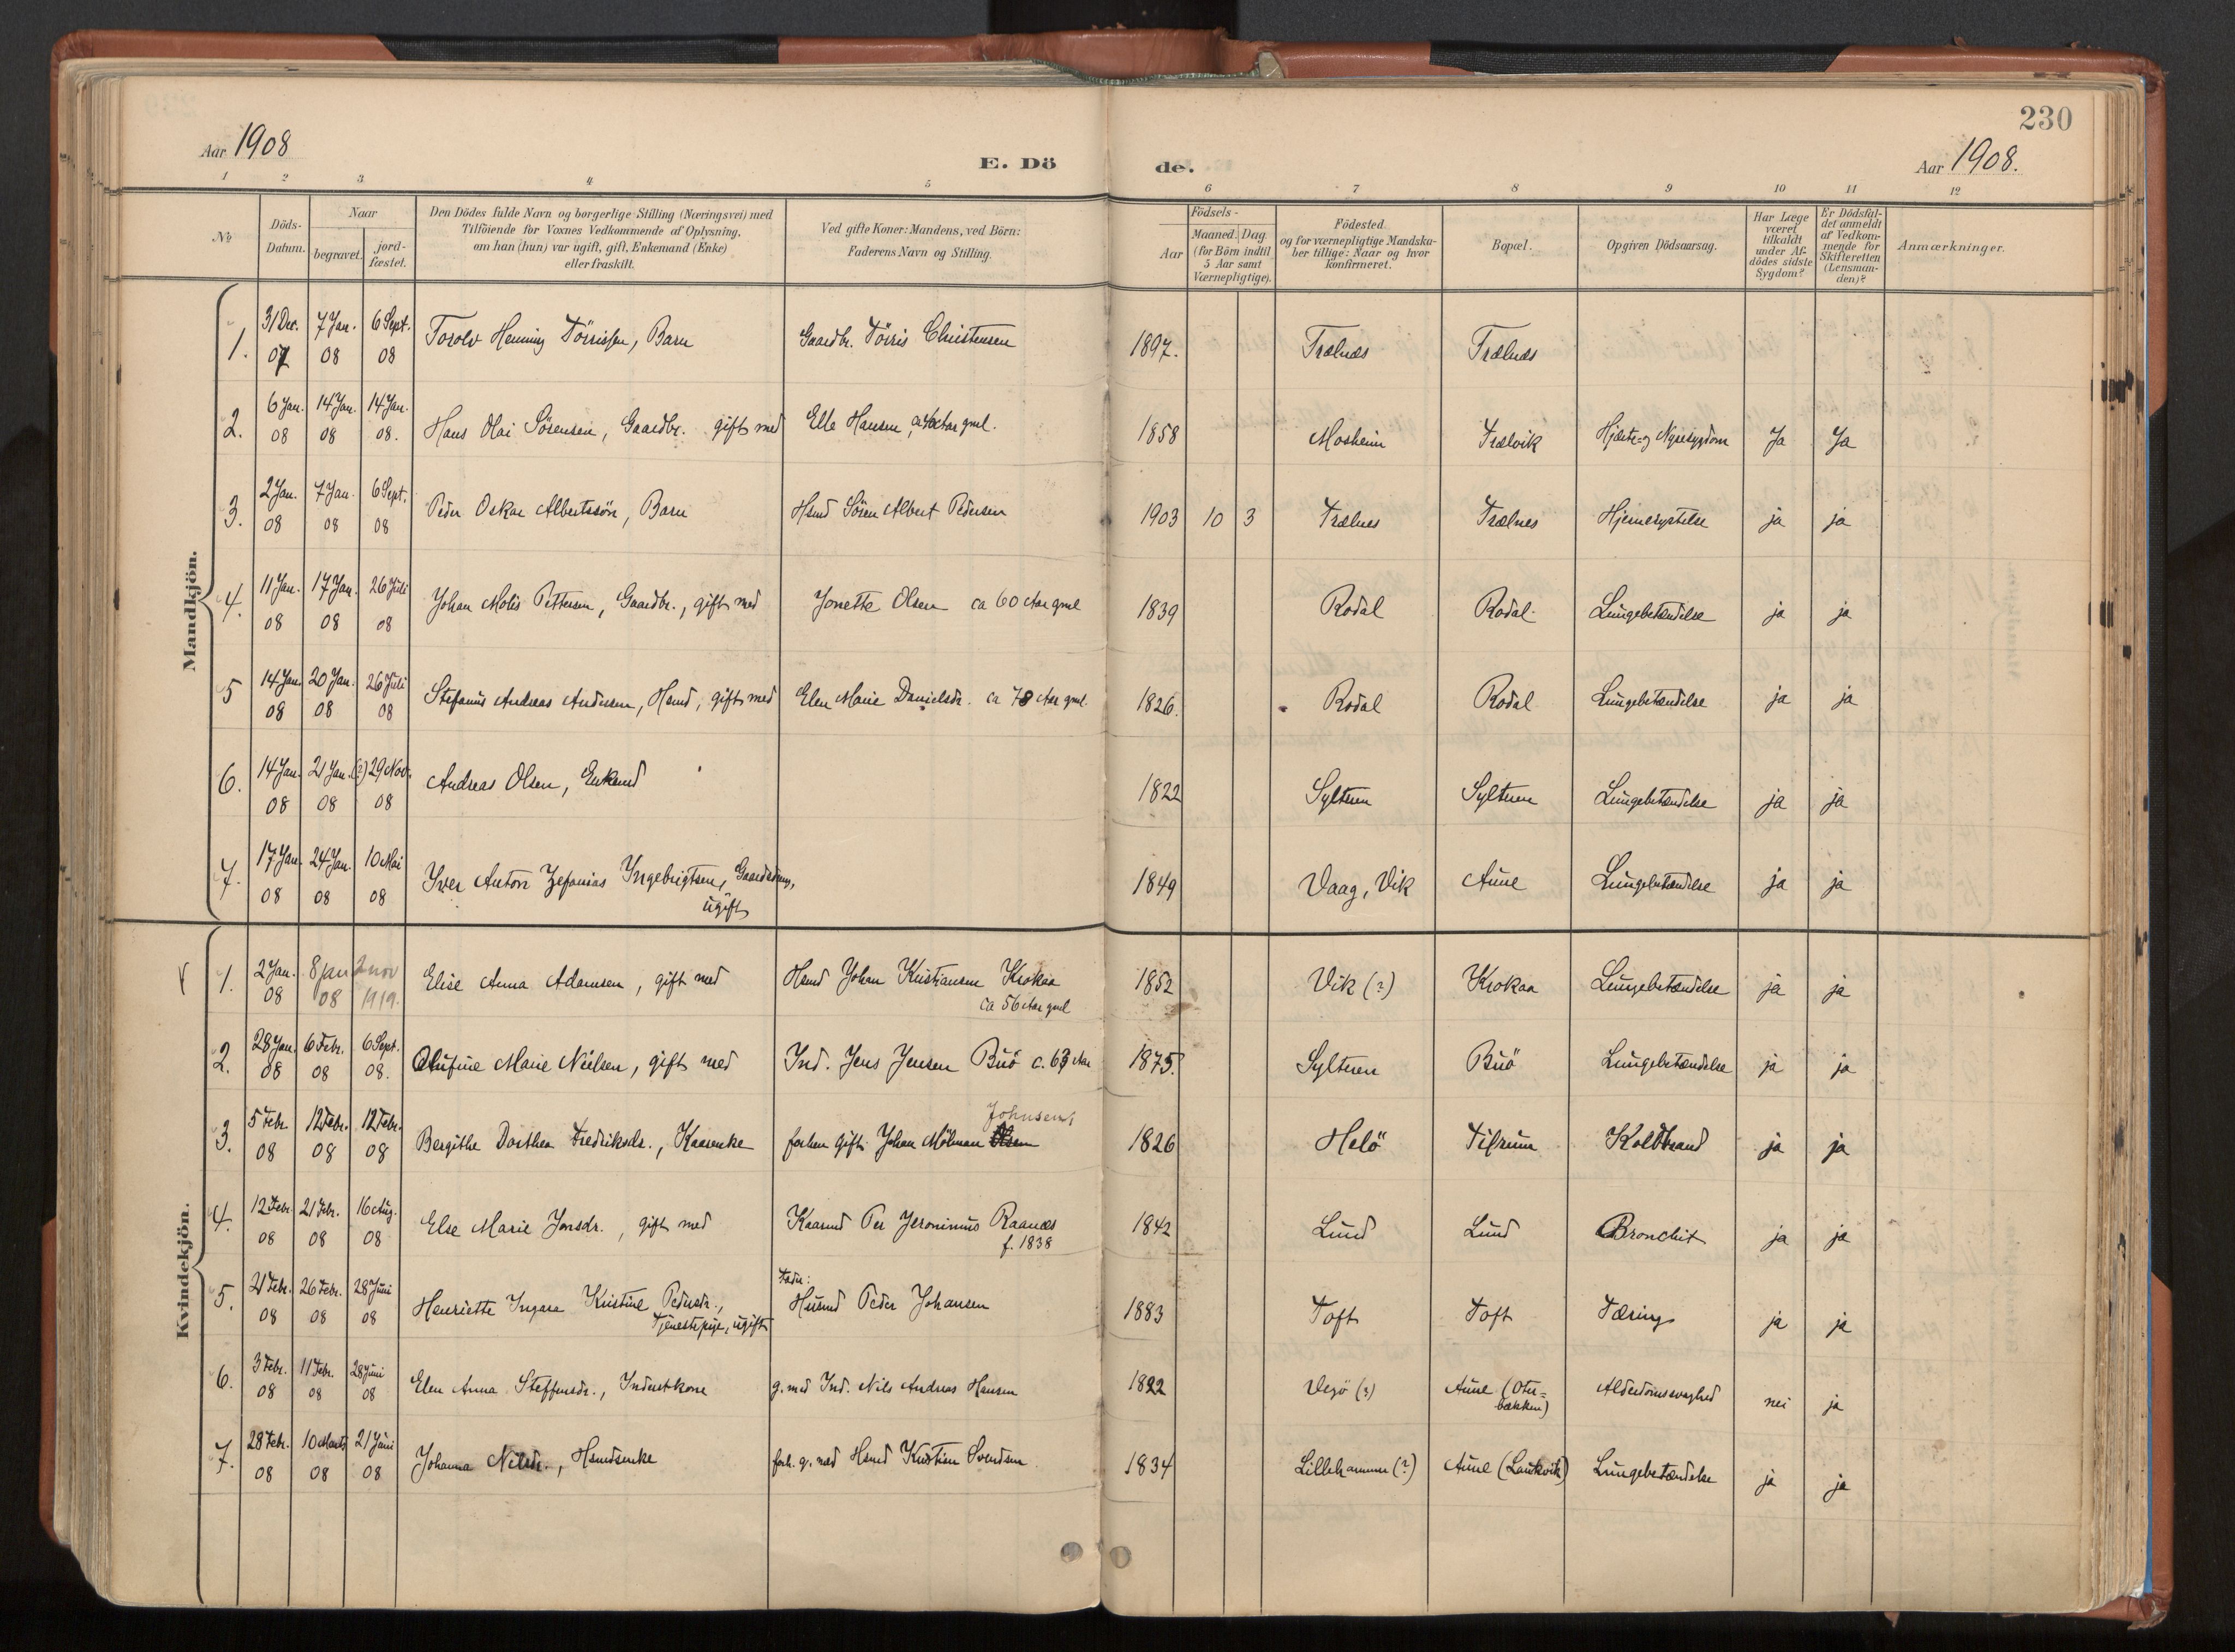 230
Aar 1908
E. Dö
de.
Aar 1908.
1 2 3 4 5 6 7 8 9 10 11 12
№
Döds-Datum.
Naar
begravet.
jordfæstet.
Den Dödes fulde Navn og borgerlige Stilling (Næringsvei) med
Tilföiende for Voxnes Vedkommende af Oplysning,
om han (hun) var ugift, gift, Enkemand (Enke)
eller fraskilt.
Ved gifte Koner: Mandens, ved Börn:
Faderens Navn og Stilling.
Födsels-
Aar
Maaned. Dag
(for Börn indtil
5 Aar samt
Værnepligtige).
Födested.
og for værnepligtige Mandska-
ber tillige: Naar og hvor
konfirmeret.
Bopæl.
Opgiven Dödsaarsag.
Har Læge
været
tilkaldt
under Af-
dödes sidste
Sygdom?
Er Dödsfal-
det anmeldt
af Vedkom-
mende for
Skifteretten
(Lensman-
den)?
Anmærkninger.
Mandkjön.
1. 31 Dec. 07 7 Jan. 08 6 Sept. 08 Torolv Henning Törrissen, Barn Gaardbr. Törris Christensen 1897. Trælnæs Trælnæs
2. 6 Jan. 08 14 Jan. 08 14 Jan. 08. Hans Olai Sörensen, Gaardbr. gift med Elle Hansen, Aar gml. 1858 Mosheim Trælvik Hjerte- og Nyresygdom Ja Ja
3. 2 Jan. 08 7 Jan. 08 6 Sept. 08 Peder Oskar Albertssön, Barn Hsmd Sören Albert Pedersen 1903 10 3 Trælnes Trælnes Hjernerystelse ja ja
4. 11 Jan. 08 17 Jan. 08 26 Juli 08 Johan Motis Pettersen, Gaardbr., gift med Jonette Olsen ca 60 Aar gml 1839 Rodal Rodal Lungebetændelse ja ja
5 14 Jan. 08 20 Jan. 08 26 Juli 08 Stefanus Andreas Andersen, Hsmd, gift med Elen Marie Danielsdr. ca 78 Aar gml. 1826. Rodal Rodal Lungebetændelse ja ja
6. 14 Jan. 08 21 Jan. 08 (?) 29 Nov. 08 Andreas Olsen, Enkemd 1822 Sylteren Sylteren Lungebetændelse ja ja
7. 17 Jan. 08 24 Jan. 08 10 Mai 08 Iver Anton Zefanias Ingebrigtsen, Gaardbrug.,
ugift 1849 Vaag, Vik Aune Lungebetændelse ja ja
Kvindekjön.
1. 2 Jan. 08 8 jan 08 2 nov 1919. Elise Anna Adamsen, gift med Hsmd Johan Kristiansen Krokaa
ca 56 Aar gml 1852 Vik (?) Krokaa Lungebetændelse ja ja
2. 28 Jan. 08 6 Febr. 08 6 Sept. 08. Olufine Marie Nielsen, gift med Ind. Jens Jensen Buö c. 63 Aar 1875. Sylteren Buö Lungebetændelse ja ja
3. 5 Febr. 08 12 Febr. 08 12 Febr. 08 Bergithe Dorthea Fredriksdr., Kaarenke forhen gift Johan Mölman Olsen Johnsen 1826 Helö Tilrum Koldbrand ja ja
4. 12 Febr. 08 21 Febr. 08 16 Aug. 08 Else Marie Jonsdr., gift med Kaarmd Per Jeronimus Raanæs
f. 1838 1842 Lund Lund Bronchit ja ja
5. 21 Febr. 08 26 Febr. 08 28 Juni 08 Henriette Ingara Kristine Pedersdr.,
Tjenestepige, ugift Fader:
Husmd Peder Johansen 1883 Toft Toft Tæring ja ja
6. 3 Febr. 08 11 Febr. 08 28 Juni 08 Elen Anna Steffensdr., Inderstkone g. med Ind. Nils Andreas Hansen 1822 Vegö (?) Aune (Oter-
bækken) Alderdomssvaghed nei ja
7. 28 Febr. 08 10 Marts 08 21 Juni 08 Johanna Nilsdr., Hsmdsenke forh. g. med Hsmd Kristian Svendsen 1834 Lillehammer (?) Aune (Laukvik) Lungebetændelse ja ja